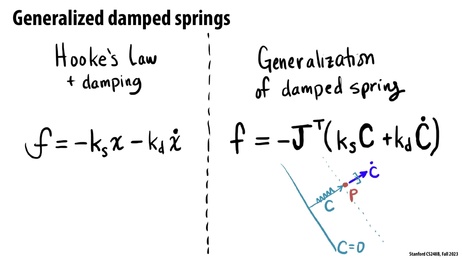 Generalized damped springs
Hooke's Law
+ damping
f = -kₛx - k_dẋ
Generalization
of damped spring
f = -Jᵀ(kₛC + k_dĊ)
Ċ
P
C
C=0
Stanford CS248B, Fall 2023